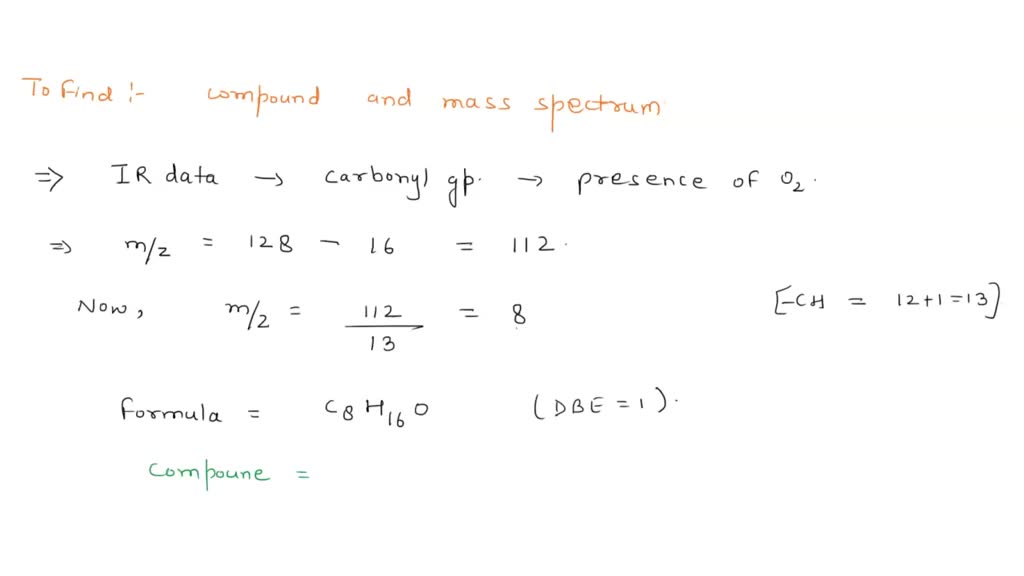 To Find :- compound and mass spectrum
⇒ IR data → carbonyl gp. → presence of O₂.
⇒ m/z = 128 - 16 = 112.
Now, m/z = 112/13 = 8 [-CH = 12+1=13]
Formula = C₈H₁₆O (DBE = 1).
Compoune =